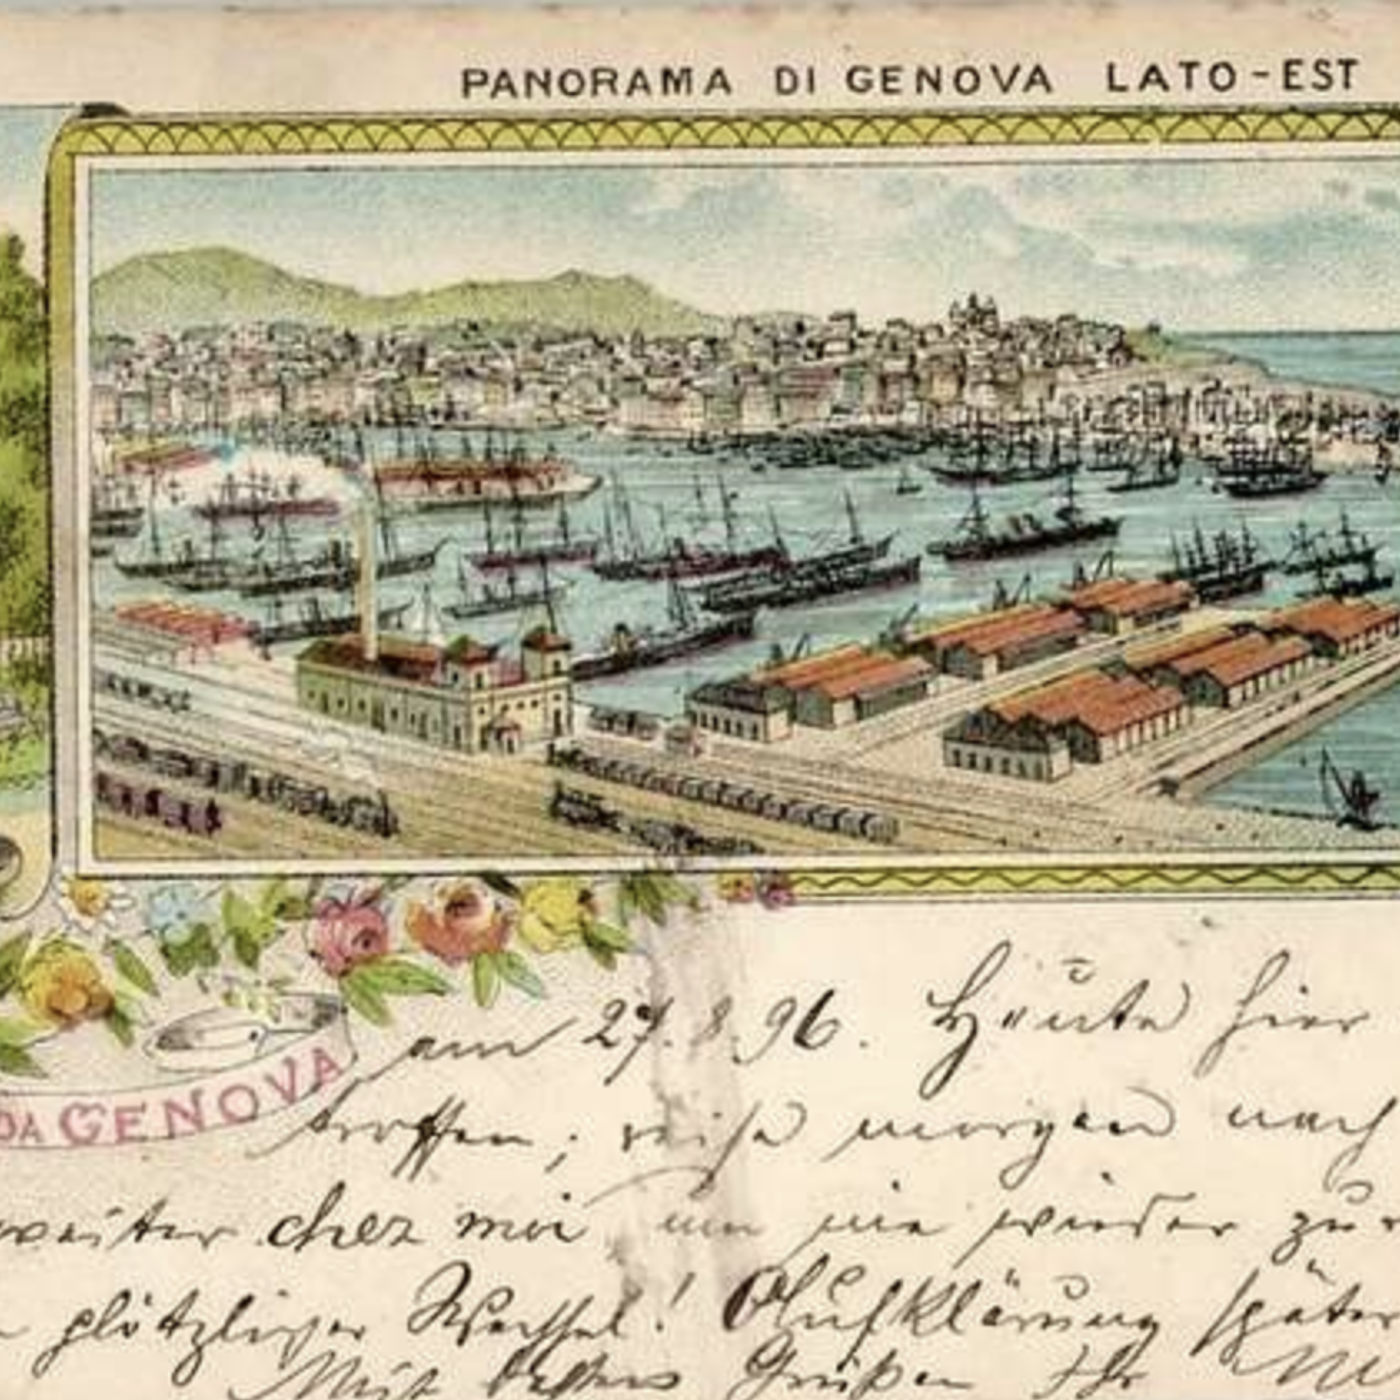 PANORAMA DI GENOVA LATO-EST
am 27.8.96. Heute hier
DA GENOVA
troffen; reise morgen nach
weiter chez moi um nie wieder zu
plötzlicher Wechsel! Aufklärung später
Mit besten Grüßen Ihr